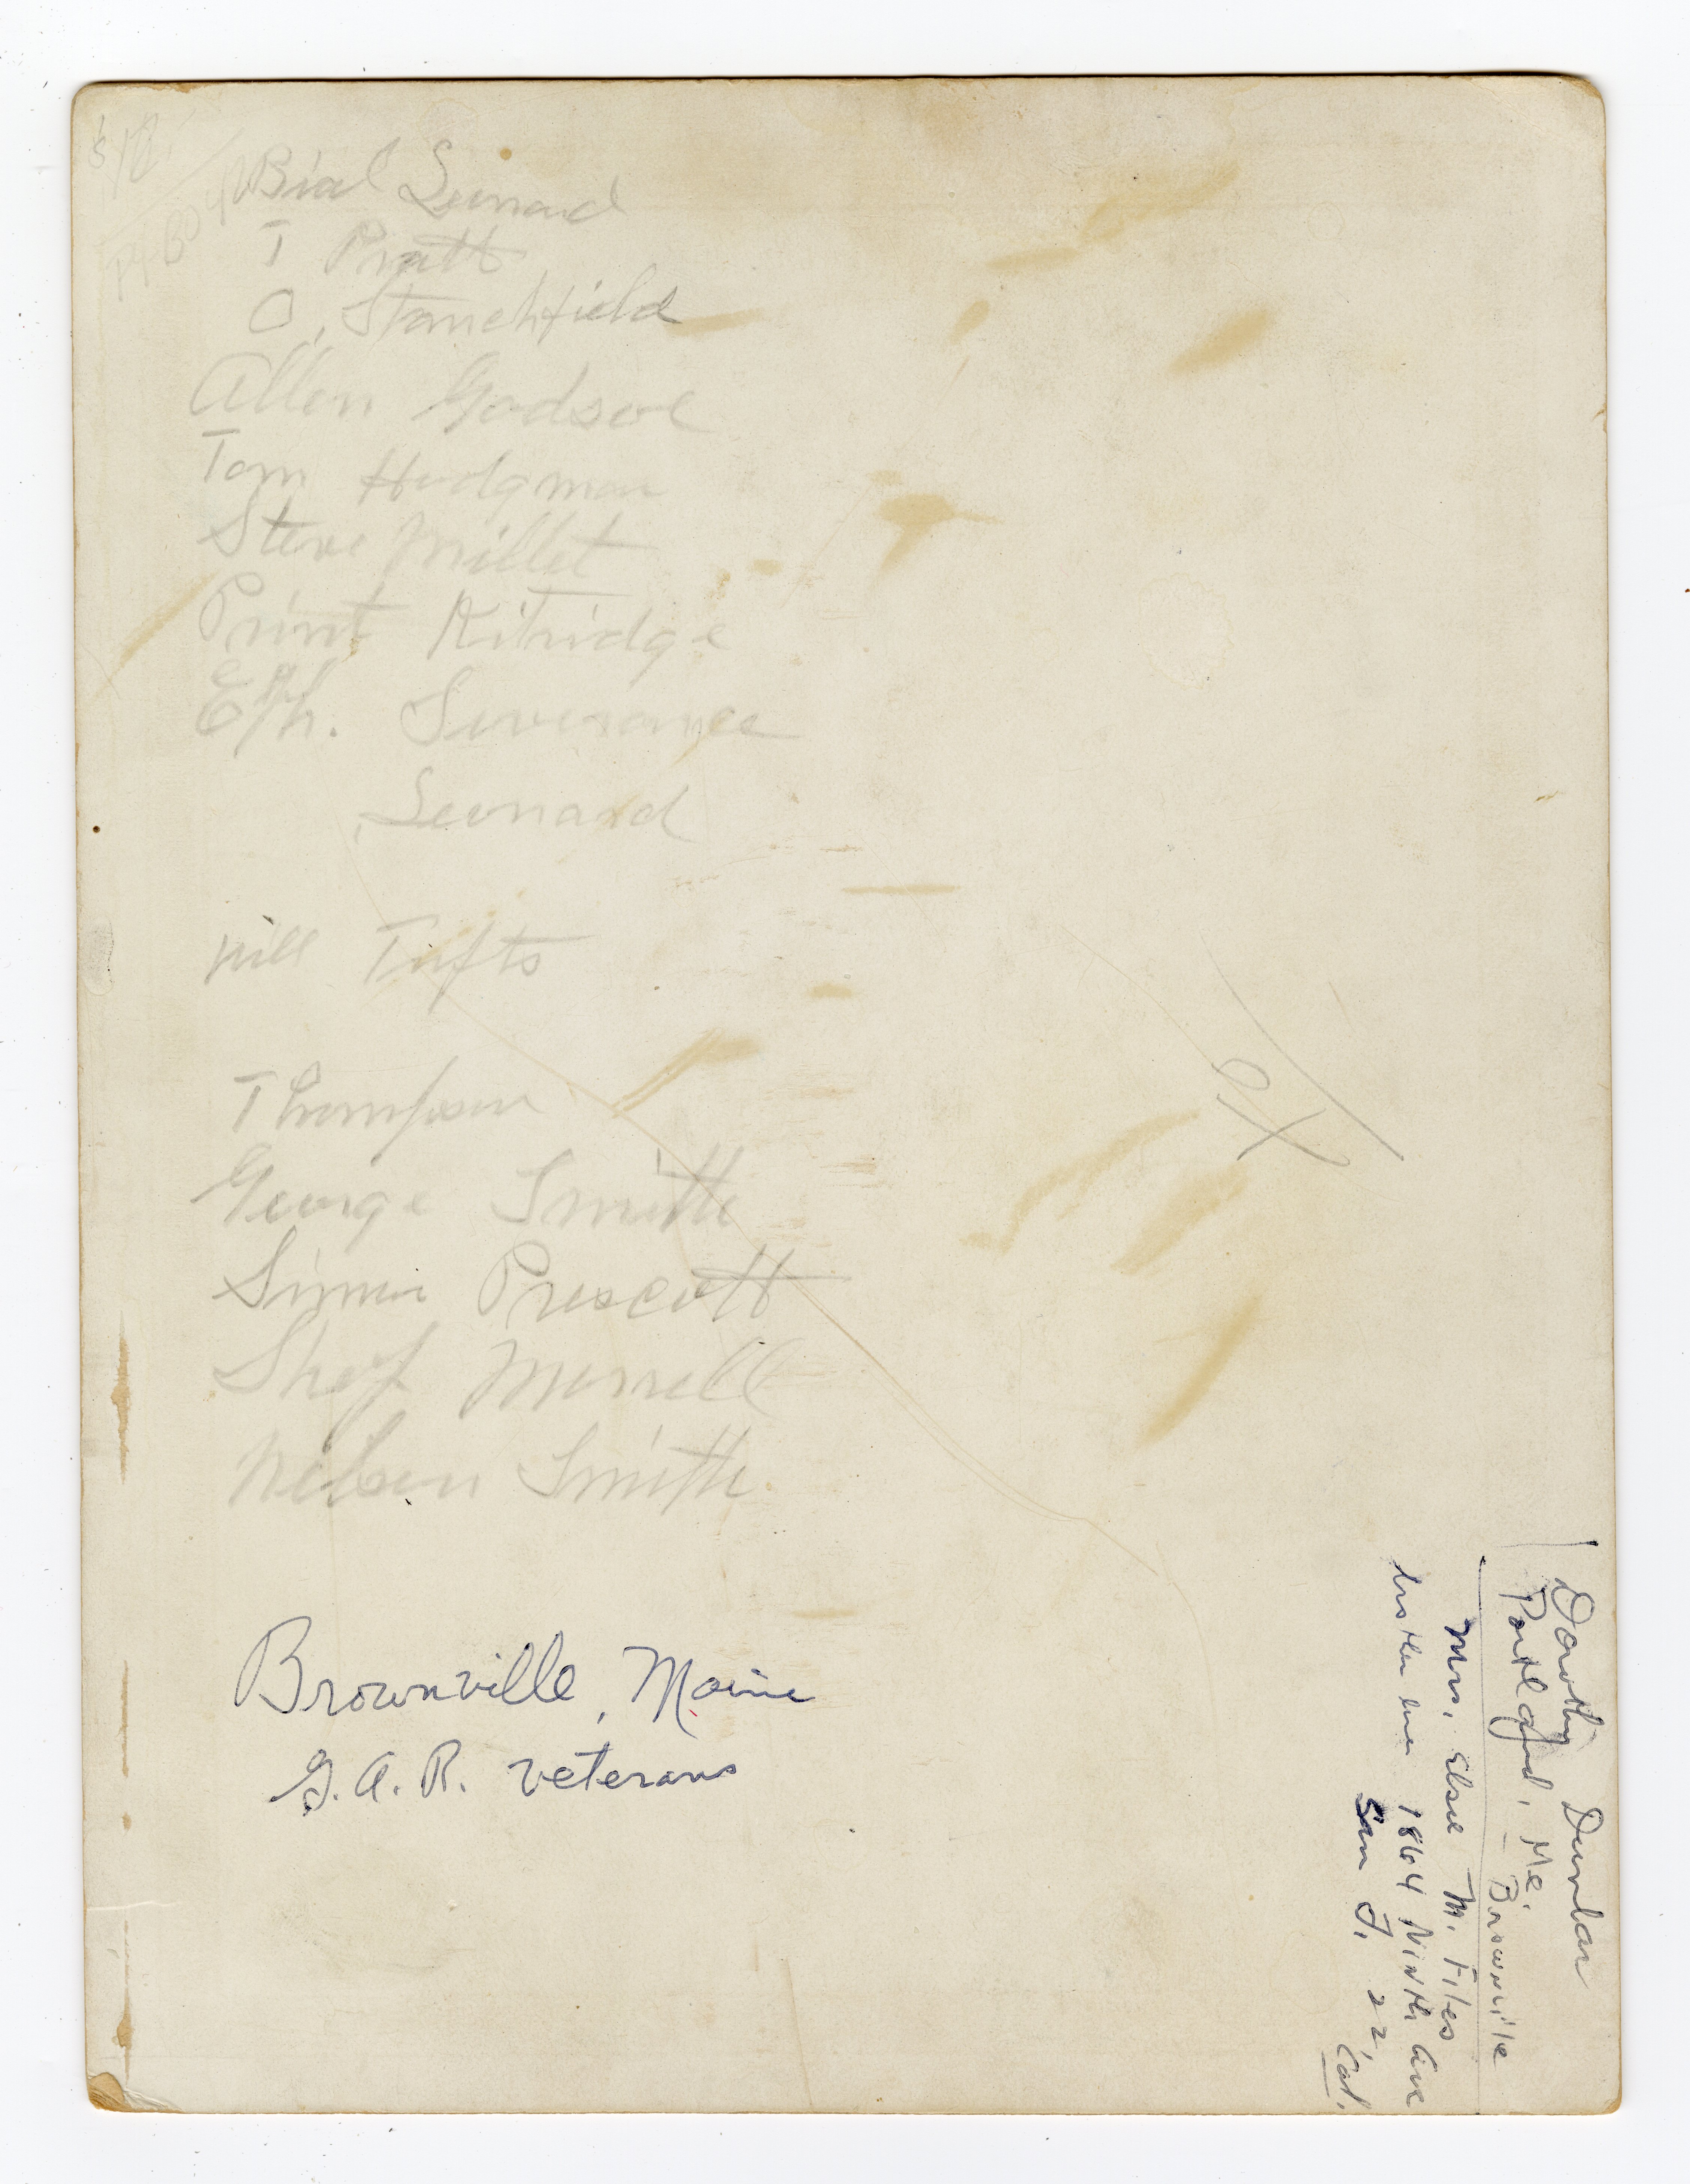 Bial Leonard
T Pratt
O, Stanchfield
Allen Godsoe
Tom Hodgman
Steve Millet
Print Kitridge
Eph. Severance
Leonard
Will Tufts
Thompson
George Smith
Simon Prescott
Shep Merrell
Nelson Smith
Brownville, Maine
G.A.R. veterans
Dorothy Dunbar
Portland, Me.
Brownville
Mrs. Elsie M. Files
1864 Ninth Ave
San F. 22, Cal.